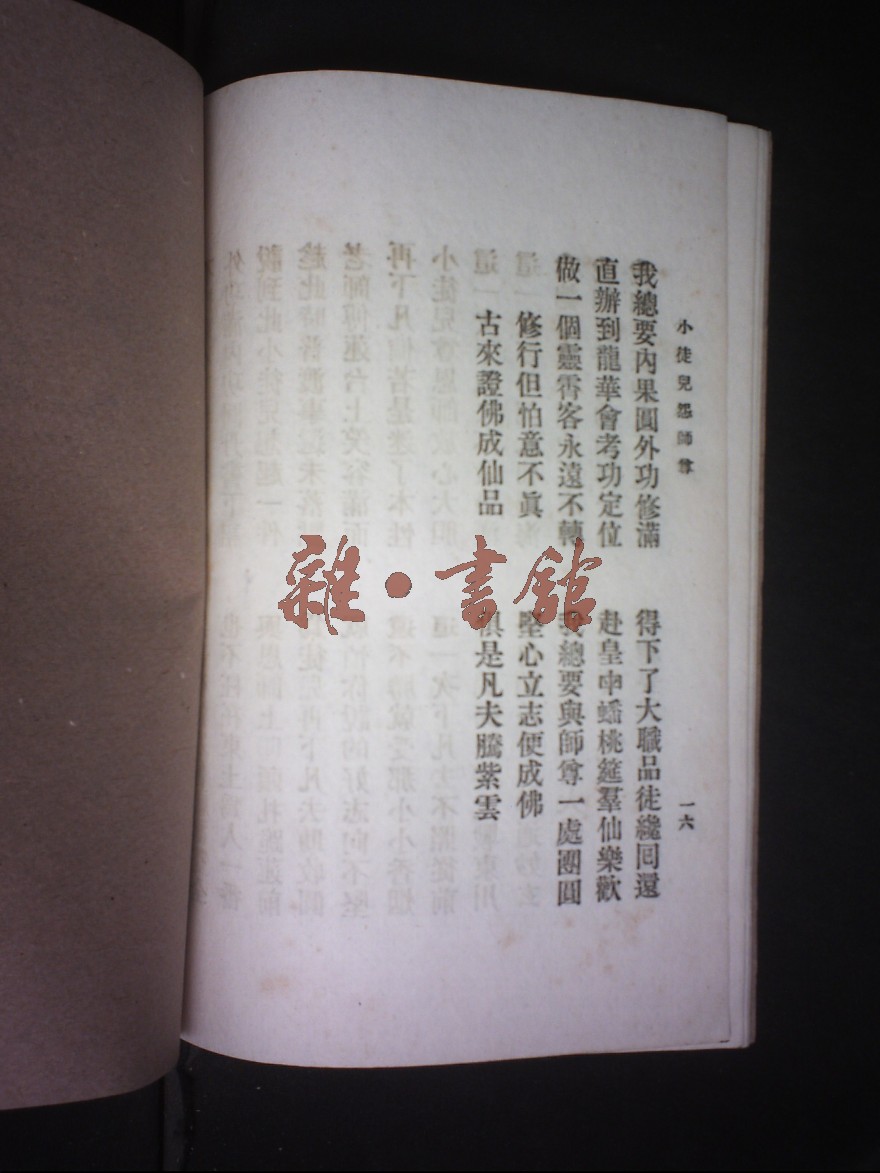 小徒兒怨師尊
一六
我總要內果圓外功修滿　得下了大職品徒纔囘還
直辦到龍華會考功定位　赴皇申蟠桃筵羣仙樂歡
做一個靈霄客永遠不轉　我總要與師尊一處團圓
修行但怕意不眞　堅心立志便成佛
古來證佛成仙品　俱是凡夫騰紫雲
雜·書館